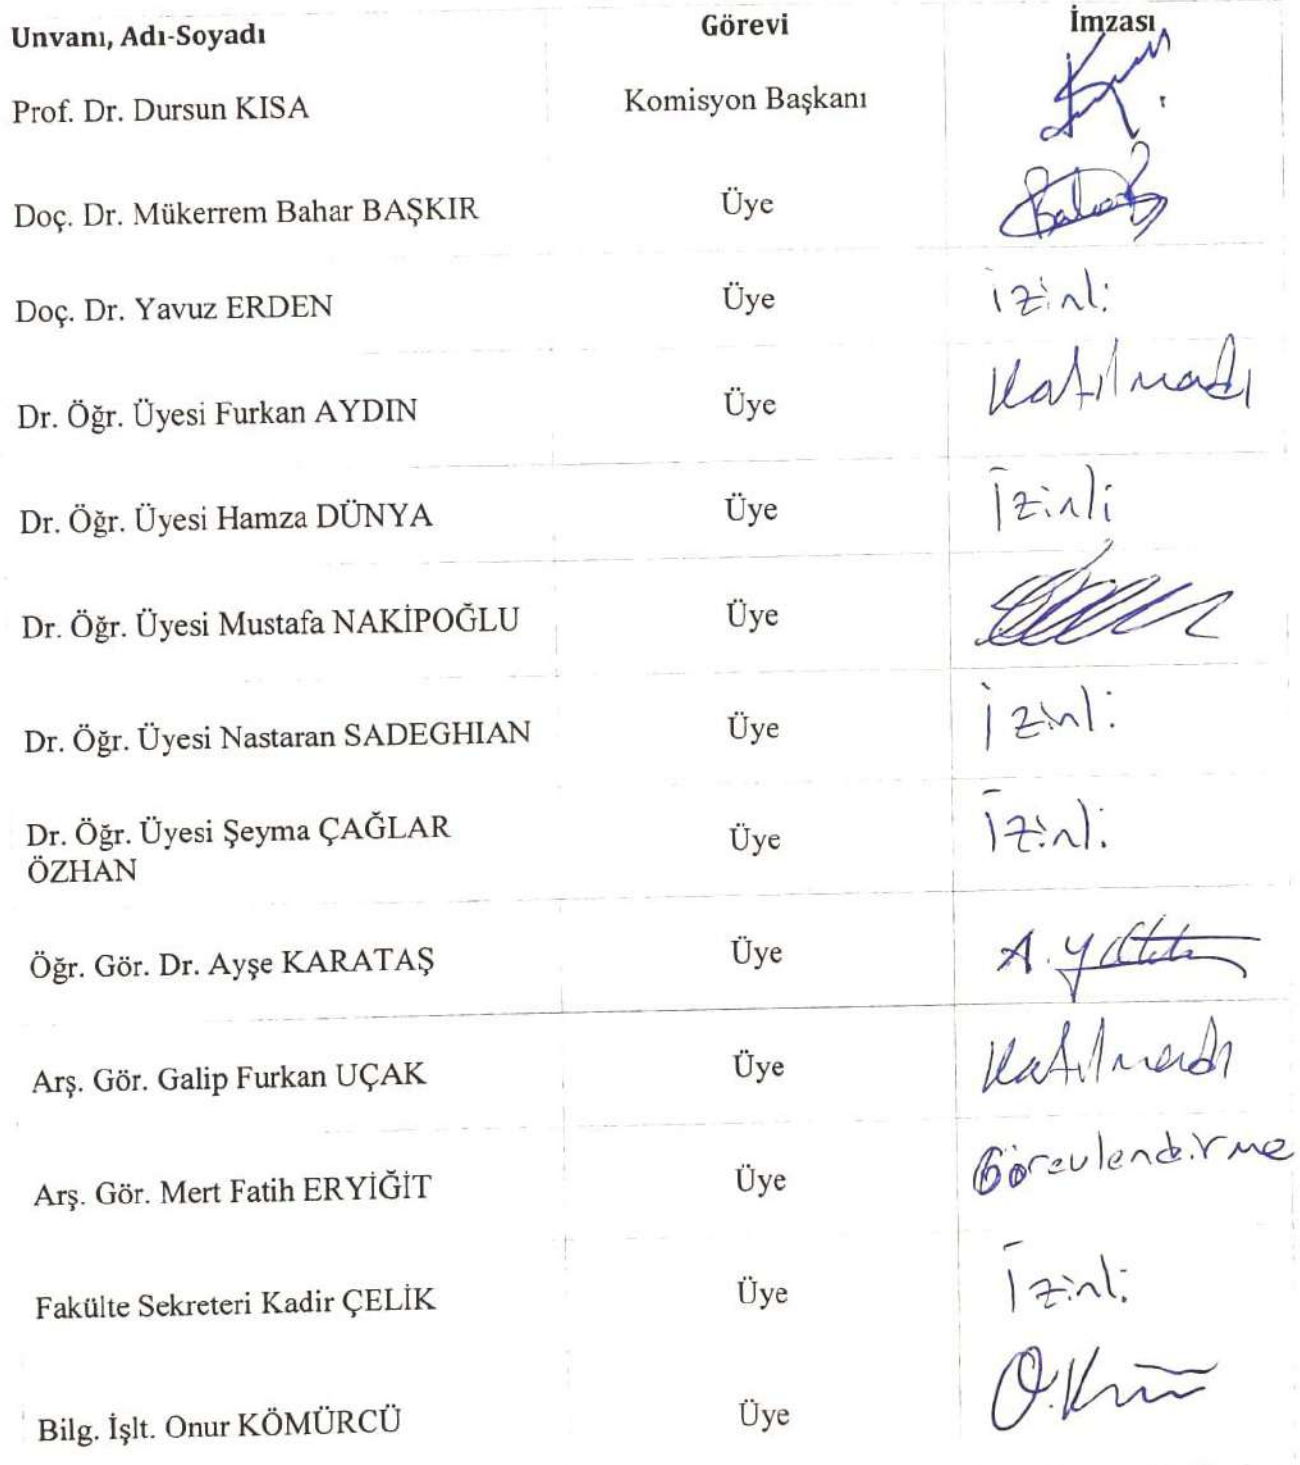 Unvanı, Adı-Soyadı Görevi İmzası
Prof. Dr. Dursun KISA Komisyon Başkanı
Doç. Dr. Mükerrem Bahar BAŞKIR Üye
Doç. Dr. Yavuz ERDEN Üye İzinli
Dr. Öğr. Üyesi Furkan AYDIN Üye Katılmadı
Dr. Öğr. Üyesi Hamza DÜNYA Üye İzinli
Dr. Öğr. Üyesi Mustafa NAKİPOĞLU Üye
Dr. Öğr. Üyesi Nastaran SADEGHIAN Üye İzinli
Dr. Öğr. Üyesi Şeyma ÇAĞLAR Üye İzinli
ÖZHAN
Öğr. Gör. Dr. Ayşe KARATAŞ Üye
Arş. Gör. Galip Furkan UÇAK Üye Katılmadı
Arş. Gör. Mert Fatih ERYİĞİT Üye Görevlendirme
Fakülte Sekreteri Kadir ÇELİK Üye İzinli
Bilg. İşlt. Onur KÖMÜRCÜ Üye